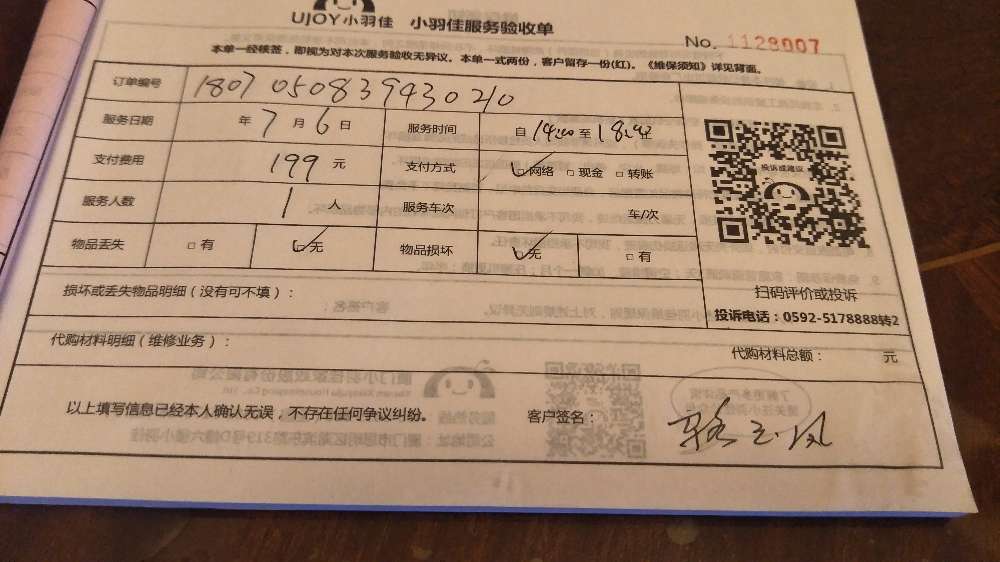 UJOY小羽佳 小羽佳服务验收单
No. 1129007
本单一经核签，即视为对本次服务验收无异议。本单一式两份，客户留存一份(红)。《维保须知》详见背面。
订单编号 180705083943020
服务日期 年 7 月 6 日 服务时间 自 14:00 至 18:00
支付费用 199 元 支付方式 网络 现金 转账
服务人数 1 人 服务车次 车/次
物品丢失 有 无 物品损坏 无 有
投诉或建议
扫码评价或投诉
投诉电话：0592-5178888转2
损坏或丢失物品明细（没有可不填）：
代购材料明细（维修业务）： 代购材料总额： 元
以上填写信息已经本人确认无误，不存在任何争议纠纷。 客户签名：